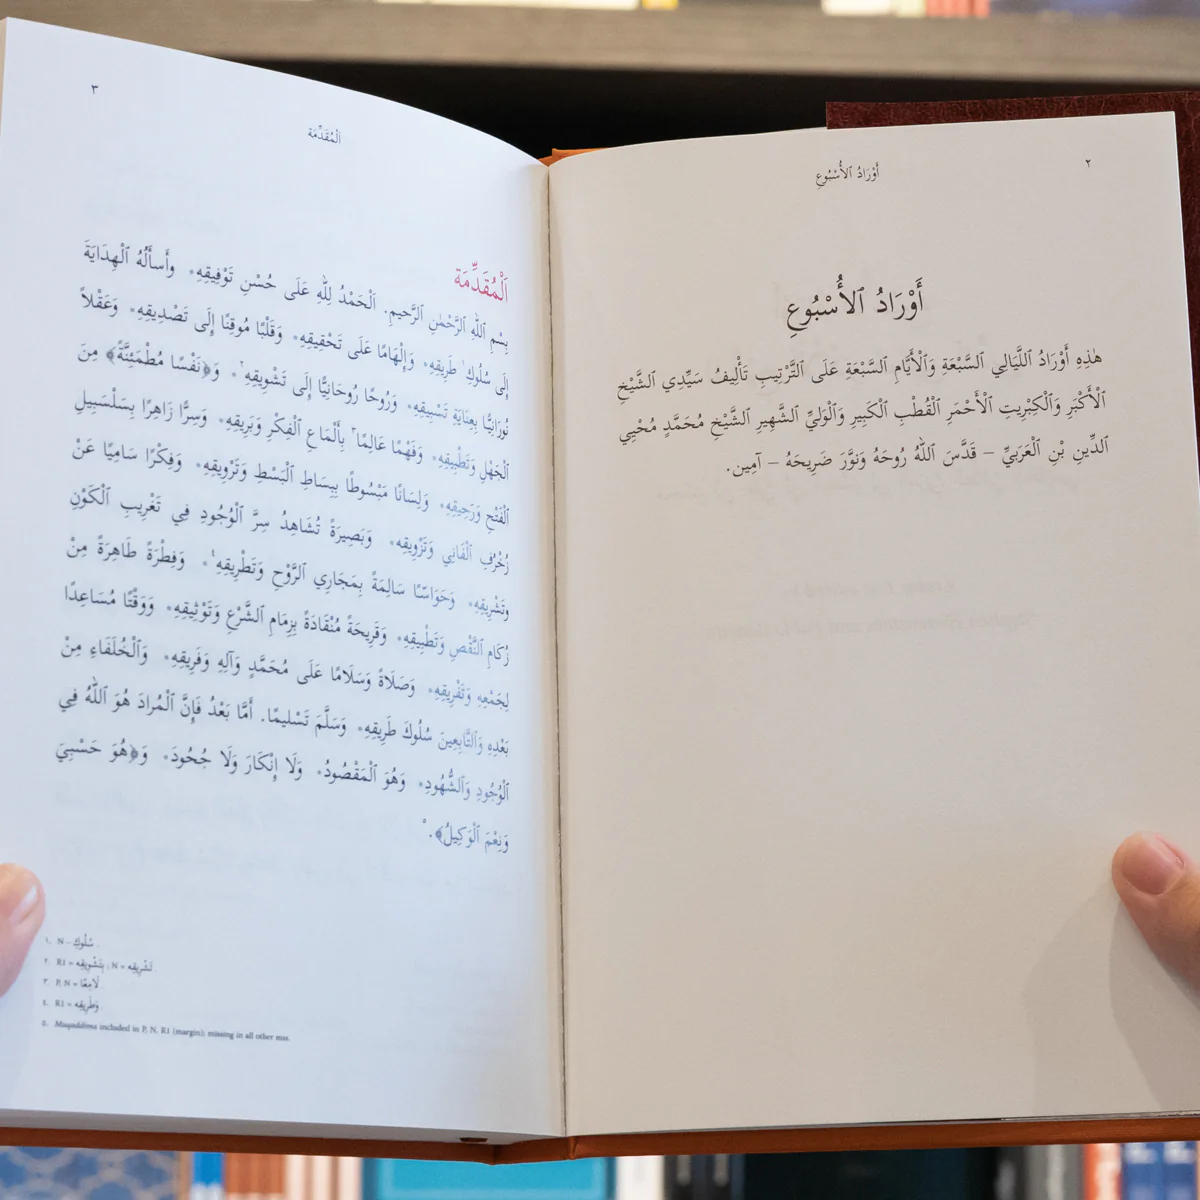 ٢
أَوْرَادُ ٱلأُسْبُوعِ
أَوْرَادُ ٱلأُسْبُوعِ
هٰذِهِ أَوْرَادُ اللَّيَالِي السَّبْعَةِ وَٱلْأَيَّامِ السَّبْعَةِ عَلَى التَّرْتِيبِ تَأْلِيفُ سَيِّدِي ٱلشَّيْخِ
ٱلْأَكْبَرِ وَٱلْكِبْرِيتِ ٱلْأَحْمَرِ ٱلْقُطْبِ ٱلْكَبِيرِ وَٱلْوَلِيِّ ٱلشَّهِيرِ ٱلشَّيْخِ مُحَمَّدٍ مُحْيِي
ٱلدِّينِ بْنِ ٱلْعَرَبِيِّ – قَدَّسَ ٱللّٰهُ رُوحَهُ وَنوَّرَ ضَرِيحَهُ – آمِين.
٣
ٱلْمُقَدِّمَة
ٱلْمُقَدِّمَة
بِسْمِ ٱللّٰهِ ٱلرَّحْمٰنِ ٱلرَّحِيمِ. اَلْحَمْدُ لِلّٰهِ عَلَى حُسْنِ تَوْفِيقِهِ* وأَسأَلُهُ ٱلْهِدَايَةَ
إِلَى سُلُوكِ١ طَرِيقِهِ* وَإِلْهَامًا عَلَى تَحْقِيقِهِ* وَقَلْبًا مُوقِنًا إِلَى تَصْدِيقِهِ* وَعَقْلاً
نُورَانِيًّا بِعِنَايَةِ تَسْبِيقِهِ* وَرُوحًا رُوحَانِيًّا إِلَى تَشْوِيقِهِ٢* وَ﴿نَفْسًا مُطْمَئِنَّةً﴾ مِنَ
ٱلْجَهْلِ وَتَطْبِيقِهِ* وَفَهْمًا عَالِمًا٣ بِأَلْمَاعِ ٱلْفِكْرِ وَبَرِيقِهِ* وَسِرًّا زَاهِرًا بِسَلْسَبِيلِ
ٱلْفَتْحِ وَرَحِيقِهِ* وَلِسَانًا مَبْسُوطًا بِبِسَاطِ ٱلْبَسْطِ وَتَرْوِيقِهِ* وَفِكْرًا سَامِيًا عَنْ
زُخْرُفِ ٱلْفَانِي وَتَزْوِيقِه* وَبَصِيرَةً تُشَاهِدُ سِرَّ ٱلْوُجُودِ فِي تَغْرِيبِ ٱلْكَوْنِ
وَتَشْرِيقِهِ* وَحَوَاسًّا سَالِمَةً بِمَجَارِي ٱلرَّوْحِ وَتَطْرِيقِهِ٤* وَفِطْرَةً طَاهِرَةً مِنْ
زُكَامِ ٱلنَّقْصِ وَتَطْبِيقِهِ* وَقَرِيحَةً مُنْقَادَةً بِزِمَامِ ٱلشَّرْعِ وَتَوْثِيقِهِ* وَوَقْتًا مُسَاعِدًا
لِجَمْعِهِ وَتَفْرِيقِهِ* وَصَلَاةً وَسَلَامًا عَلَى مُحَمَّدٍ وَآلِهِ وَفَرِيقِهِ* وَٱلْخُلَفَاءِ مِنْ
بَعْدِهِ وَٱلتَّابِعِينَ سُلُوكَ طَرِيقِهِ* وَسَلَّمَ تَسْلِيمًا. أَمَّا بَعْدُ فَإِنَّ ٱلْمُرادَ هُوَ ٱللّٰهُ فِي
ٱلْوُجُودِ وَٱلشُّهُودِ* وَهُوَ ٱلْمَقْصُودُ* وَلَا إِنْكَارَ وَلَا جُحُودَ* وَ﴿هُوَ حَسْبِيَ
وَنِعْمَ ٱلْوَكِيلُ﴾.٥
١. N – سُلُوكِ.
٢. R1 = بِتَشْوِيقِه ; N = تَشْرِيقِه.
٣. P, N = لَامِعًا.
٤. R1 = وَطَرِيقِهِ.
٥. Muqaddima included in P, N, R1 (margin); missing in all other mss.